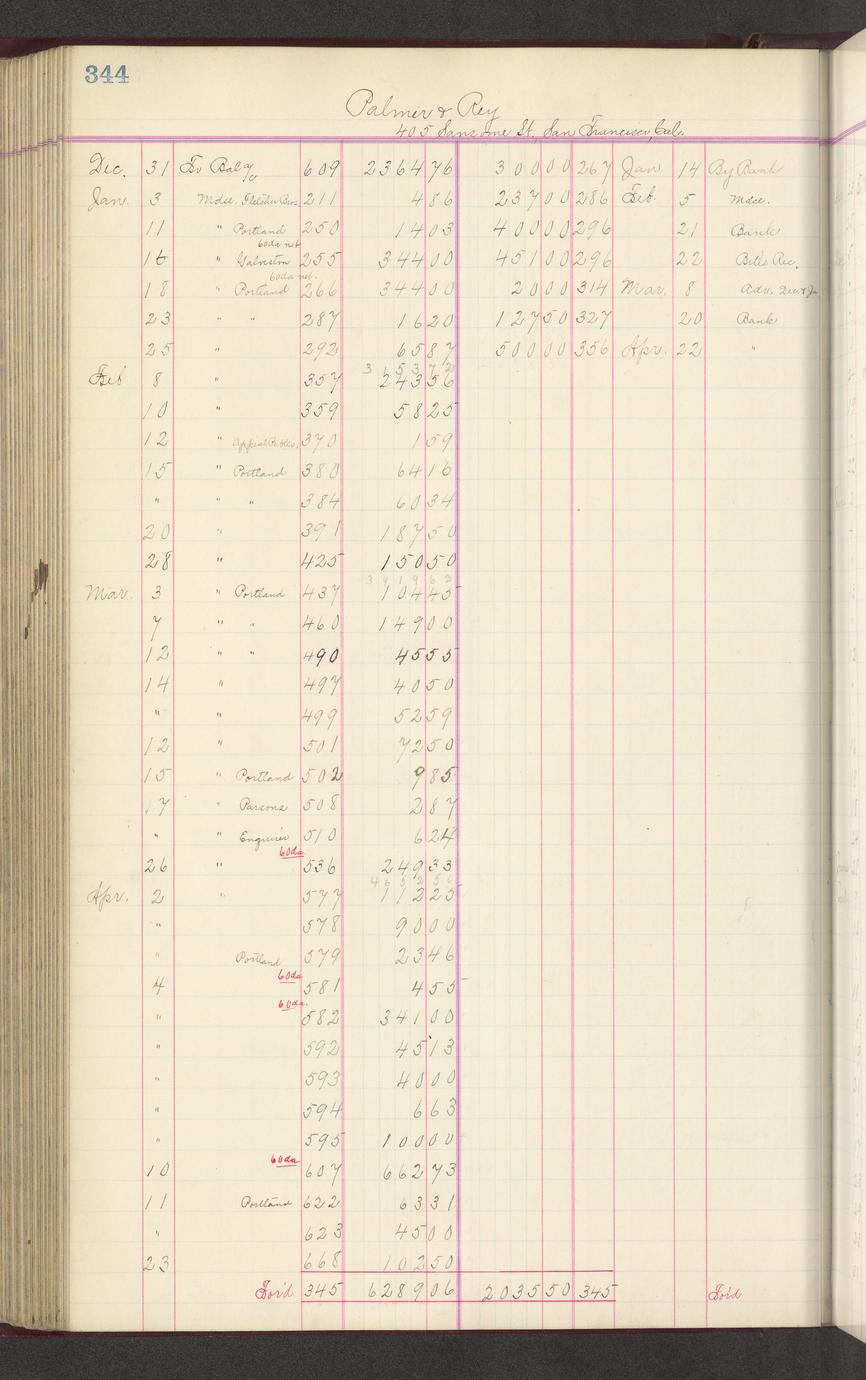 344
Palmer & Rey
405 Sansome St., San Francisco, Cal.
Dec. 31 To Bal a/c 609 2364 76 300 00 267 Jan 14 By Bank
Jan. 3 Mdse. Fletcher Bros. 211 4 86 237 00 286 Feb. 5 Mdse.
11 " Portland 250 14 03 400 00 296 21 Bank
60 da net
16 " Galveston 255 344 00 451 00 296 22 Bills Rec.
60 da net.
18 " Portland 266 344 00 20 00 314 Mar. 8 Adv. Dec. & Ja
23 " " 287 16 20 127 50 327 20 Bank
25 " 292 65 87 500 00 356 Apr. 22 "
3 6 5 3 7 2
Feb 8 " 357 243 56
10 " 359 58 25
12 " 370 1 59
15 " Portland 380 64 16
" " " 384 60 34
20 " 391 187 50
28 " 425 150 50
3 4 1 9 6 2
Mar. 3 " Portland 437 104 45
7 " " 460 149 00
12 " " 490 45 55
14 " 497 40 50
" " 499 52 59
12 " 501 72 50
15 " Portland 502 9 85
17 " Parsons 508 2 87
" " Enquirer 510 6 24
60 da
26 " 536 249 33
4 6 5 2 5 0
Apr. 2 " 577 112 25
" 578 90 00
" Portland 579 23 46
60 da
4 581 4 55
60 da.
" 582 341 00
" 592 45 13
" 593 40 00
" 594 6 63
" 595 100 00
60 da
10 607 662 73
11 Portland 622 63 31
" 623 45 00
23 668 102 50
For'd 345 6289 06 2035 50 345 For'd